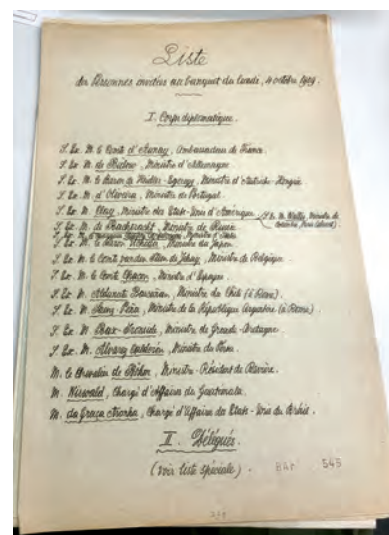 Liste
des Personnes invitées au banquet du lundi, 4 octobre 1909.
I. Corps diplomatique.
S. Ex. M. le Comte d'Aunay, Ambassadeur de France.
S. Ex. M. de Bülow, Ministre d'Allemagne
S. Ex. M. le Baron de Heidler-Egeregg, Ministre d'Autriche-Hongrie
S. Ex. M. d'Oliveira, Ministre de Portugal.
S. Ex. M. Clay, Ministre des Etats-Unis d'Amérique
S. Ex. M. de Bacheracht, Ministre de Russie
S. Ex. M. Ministre d'Italie
S. Ex. M. le Baron Ministre du Japon
S. Ex. M. le Comte van den Steen de Jehay, Ministre de Belgique
S. Ex. M. le Comte Chacon, Ministre d'Espagne
S. Ex. M. Aldunate Bascuñan, Ministre du Chili (à Rome)
S. Ex. M. Saenz Peña, Ministre de la République Argentine (à Rome)
S. Ex. M. Bax-Ironside, Ministre de Grande-Bretagne
S. Ex. M. Alvarez Calderón, Ministre du Pérou.
M. le Chevalier de Böhm, Ministre-Résident de Bavière.
M. Chargé d'Affaires du Guatemala
M. da Graça Aranha, Chargé d'Affaires des Etats-Unis du Brésil.
II. Délégués.
(voir liste spéciale).
BAr 545